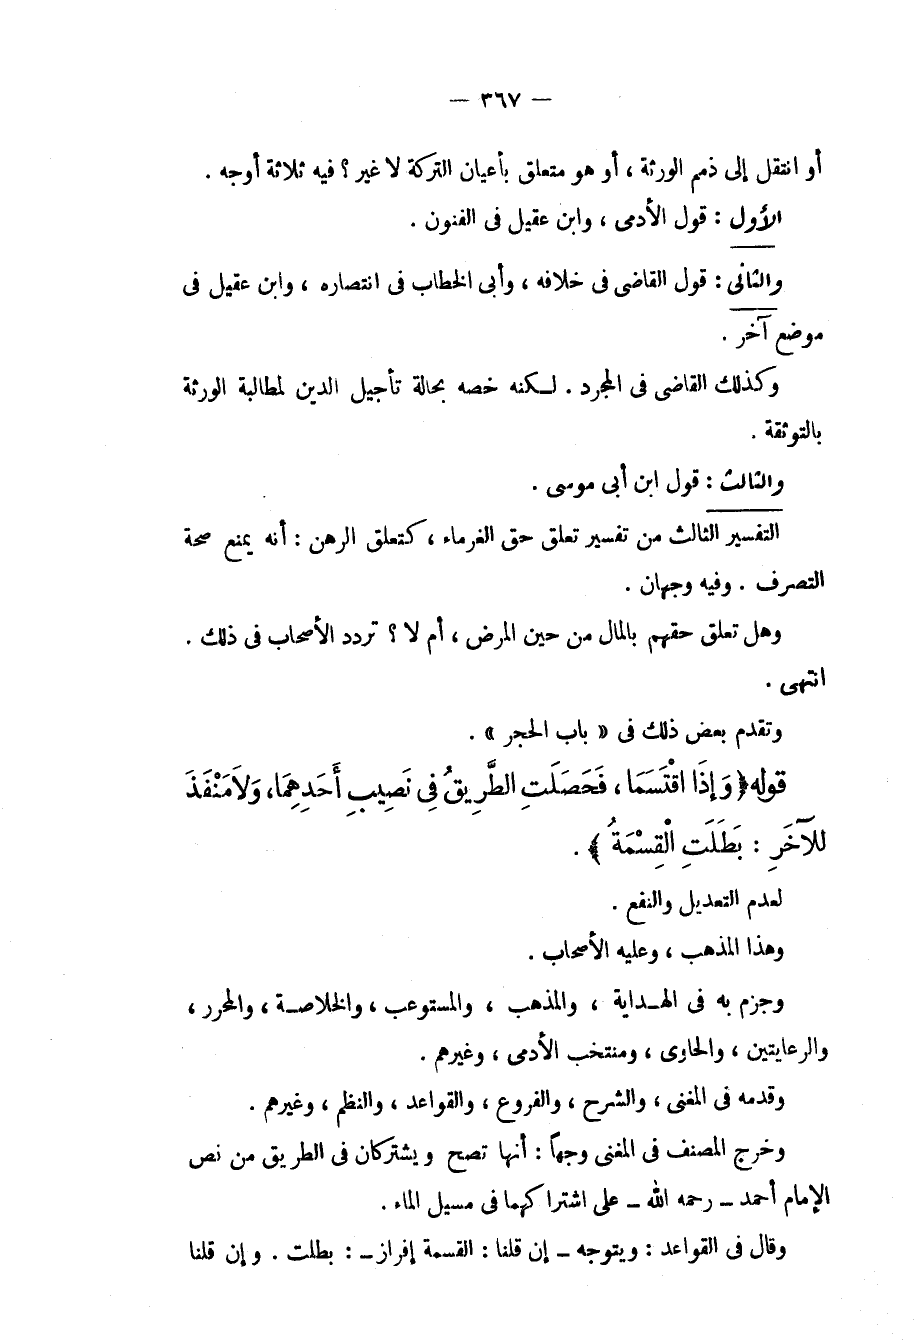 — ٣٦٧ —
أو انتقل إلى ذمم الورثة ، أو هو متعلق بأعيان التركة لا غير ؟ فيه ثلاثة أوجه .
الأول : قول الأدمى ، وابن عقيل فى الفنون .
والثانى : قول القاضى فى خلافه ، وأبى الخطاب فى انتصاره ، وابن عقيل فى
موضع آخر .
وكذلك القاضى فى المجرد . لـكنه خصه بحالة تأجيل الدين لمطالبة الورثة
بالتوثقة .
والثالث : قول ابن أبى موسى .
التفسير الثالث من تفسير تعلق حق الغرماء ، كتعلق الرهن : أنه يمنع صحة
التصرف . وفيه وجهان .
وهل تعلق حقهم بالمال من حين المرض ، أم لا ؟ تردد الأصحاب فى ذلك .
انتهى .
وتقدم بعض ذلك فى « باب الحجر » .
قوله ﴿ وَإِذَا اقْتَسَمَا ، فَحَصَلَتِ الطَّرِيقُ فِي نَصِيبِ أَحَدِهِمَا، وَلَا مَنْفَذَ
لِلآخَرِ : بَطَلَتِ الْقِسْمَةُ ﴾ .
لعدم التعديل والنفع .
وهذا المذهب ، وعليه الأصحاب .
وجزم به فى الهـداية ، والمذهب ، والمستوعب ، والخلاصـة ، والمحرر ،
والرعايتين ، والحاوى ، ومنتخب الأدمى ، وغيرهم .
وقدمه فى المغنى ، والشرح ، والفروع ، والقواعد ، والنظم ، وغيرهم .
وخرج المصنف فى المغنى وجهاً : أنها تصح ويشتركان فى الطريق من نص
الإمام أحمد ـ رحمه الله ـ على اشتراكهما فى مسيل الماء .
وقال فى القواعد : ويتوجه ـ إن قلنا : القسمة إفراز ـ : بطلت . وإن قلنا